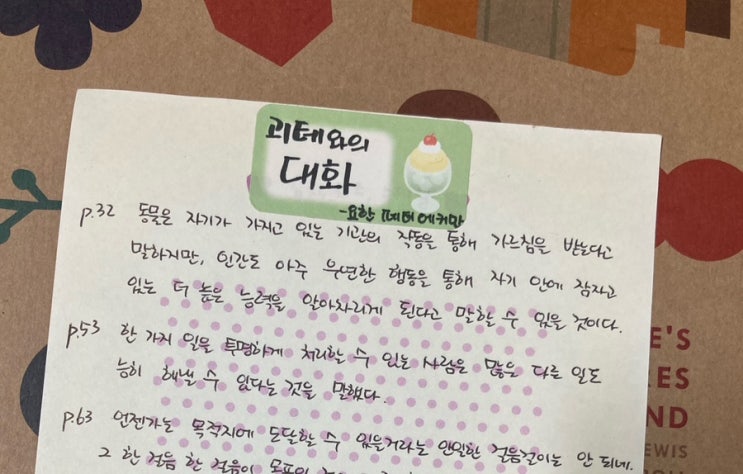 괴테와의
대화
-요한 페터 에커만
p.32 동물은 자기가 가지고 있는 기관의 작동을 통해 가르침을 받는다고
말하지만, 인간도 아주 우연한 행동을 통해 자기 안에 잠자고
있는 더 높은 능력을 알아차리게 된다고 말할 수 있을 것이다.
p.53 한 가지 일을 투명하게 처리할 수 있는 사람은 많은 다른 일도
능히 해낼 수 있다는 것을 말했다.
p.63 언젠가는 목적지에 도달할 수 있을거라는 안일한 걸음걸이는 안 되네.
그 한 걸음 한 걸음이
E'S
ES
ND
EWIS